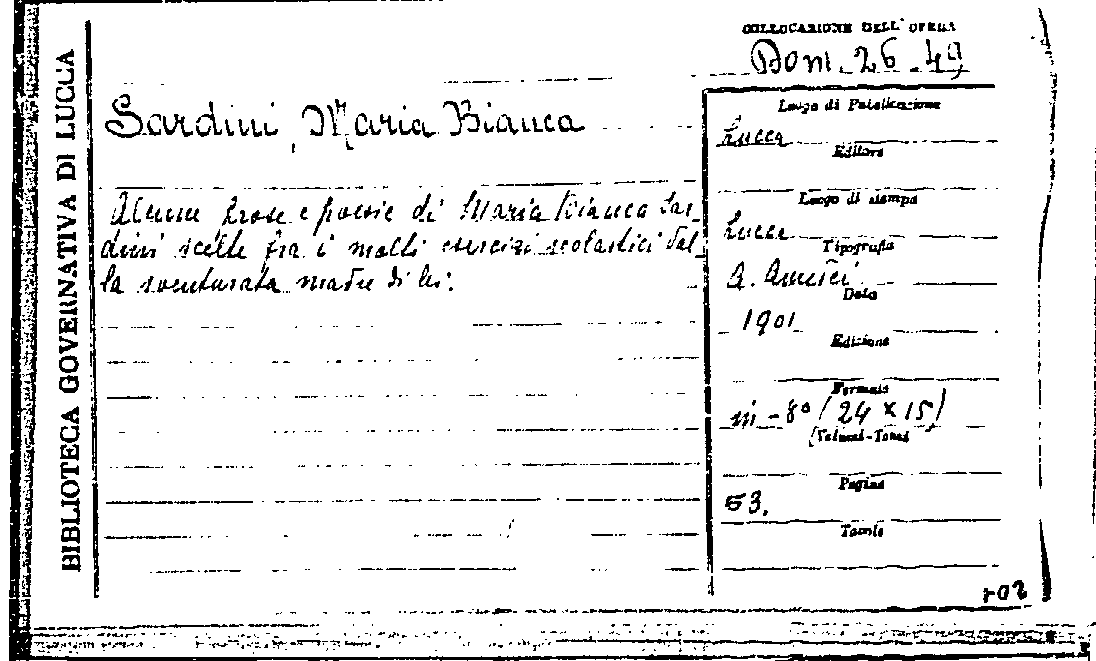 BIBLIOTECA GOVERNATIVA DI LUCCA
COLLOCAZIONE DELL'OPERA
Dom. 26. 49
Sardini, Maria Bianca
Alcune prose e poesie di Maria Bianca Sar-
dini scelte fra i molti esercizi scolastici dal-
la sventurata madre di lei.
Luogo di Pubblicazione
Lucca
Editore
Luogo di stampa
Lucca
Tipografia
A. Amedei
Data
1901
Edizione
Formato
in-8° (24 x 15)
(Volumi-Tomi
Pagine
53.
Tavole